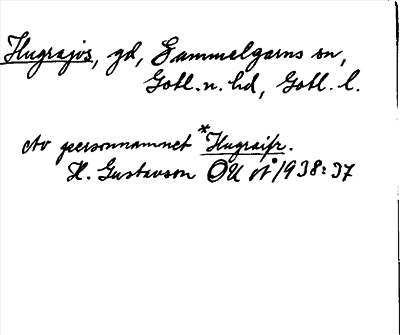 Hugrajvs, gd, Gammelgarns sn,
Gotl. n. hd, Gotl. l.
Av personnamnet *Hugraifr.
H. Gustavson OÄ o N 1938: 37